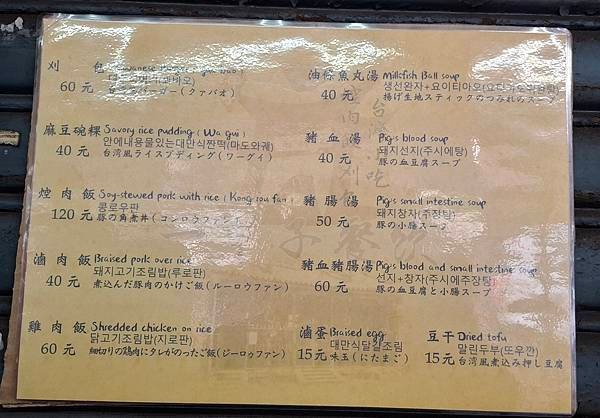 刈包 Taiwanese
60元
バーガー(クァパオ)
麻豆碗粿 Savory rice pudding (Wa gui)
안에내용물있는대만식짠떡(마도와궤)
40元 台湾風ライスプディング(ワーグイ)
焢肉飯 Soy-stewed pork with rice (Kong rou fan)
콩로우판
120元 豚の角煮丼(コンロウファン)
滷肉飯 Braised pork over rice
돼지고기조림밥(루로판)
40元 煮込んだ豚肉のかけご飯(ルーロウファン)
雞肉飯 Shredded chicken on rice
닭고기조림밥(지로판)
60元 細切りの鶏肉にタレがのったご飯(ジーロゥファン)
油條魚丸湯 Milkfish Ball soup
생선완자+요이티아오
40元 揚げ生地スティックのつみれのスープ
豬血湯 Pig's blood soup
돼지선지(주시에탕)
40元 豚の血豆腐スープ
豬腸湯 Pig's small intestine soup
돼지창자(주장탕)
50元 豚の小腸スープ
豬血豬腸湯 Pig's blood and small intestine soup
선지+창자(주시에주장탕)
60元 豚の血豆腐と小腸スープ
滷蛋 Braised egg
대만식달걀조림
15元 味玉(にたまご)
豆干 Dried tofu
말린두부(또우깐)
15元 台湾風煮込み押し豆腐